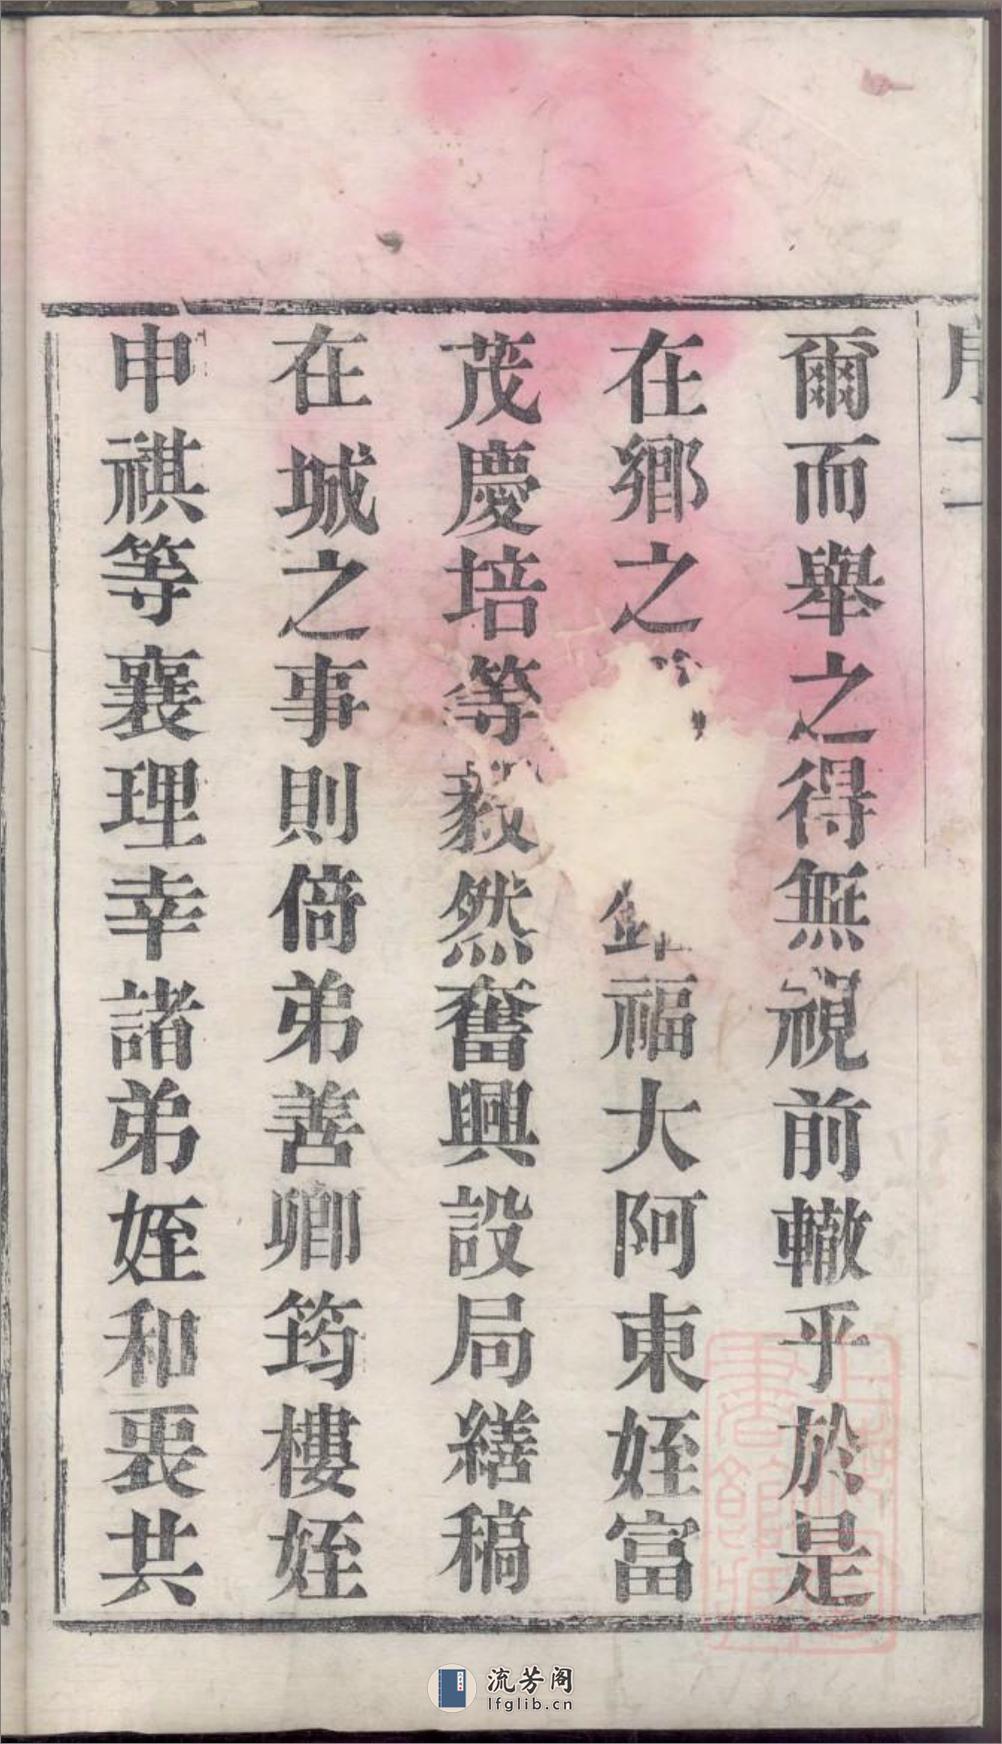 序 二
爾而舉之得無視前轍乎於是
在鄉之 福大阿東姪富
茂慶培等毅然奮興設局繕稿
在城之事則倚弟善卿筠樓姪
申祺等襄理幸諸弟姪和衷共
流芳阁
lfglib.cn